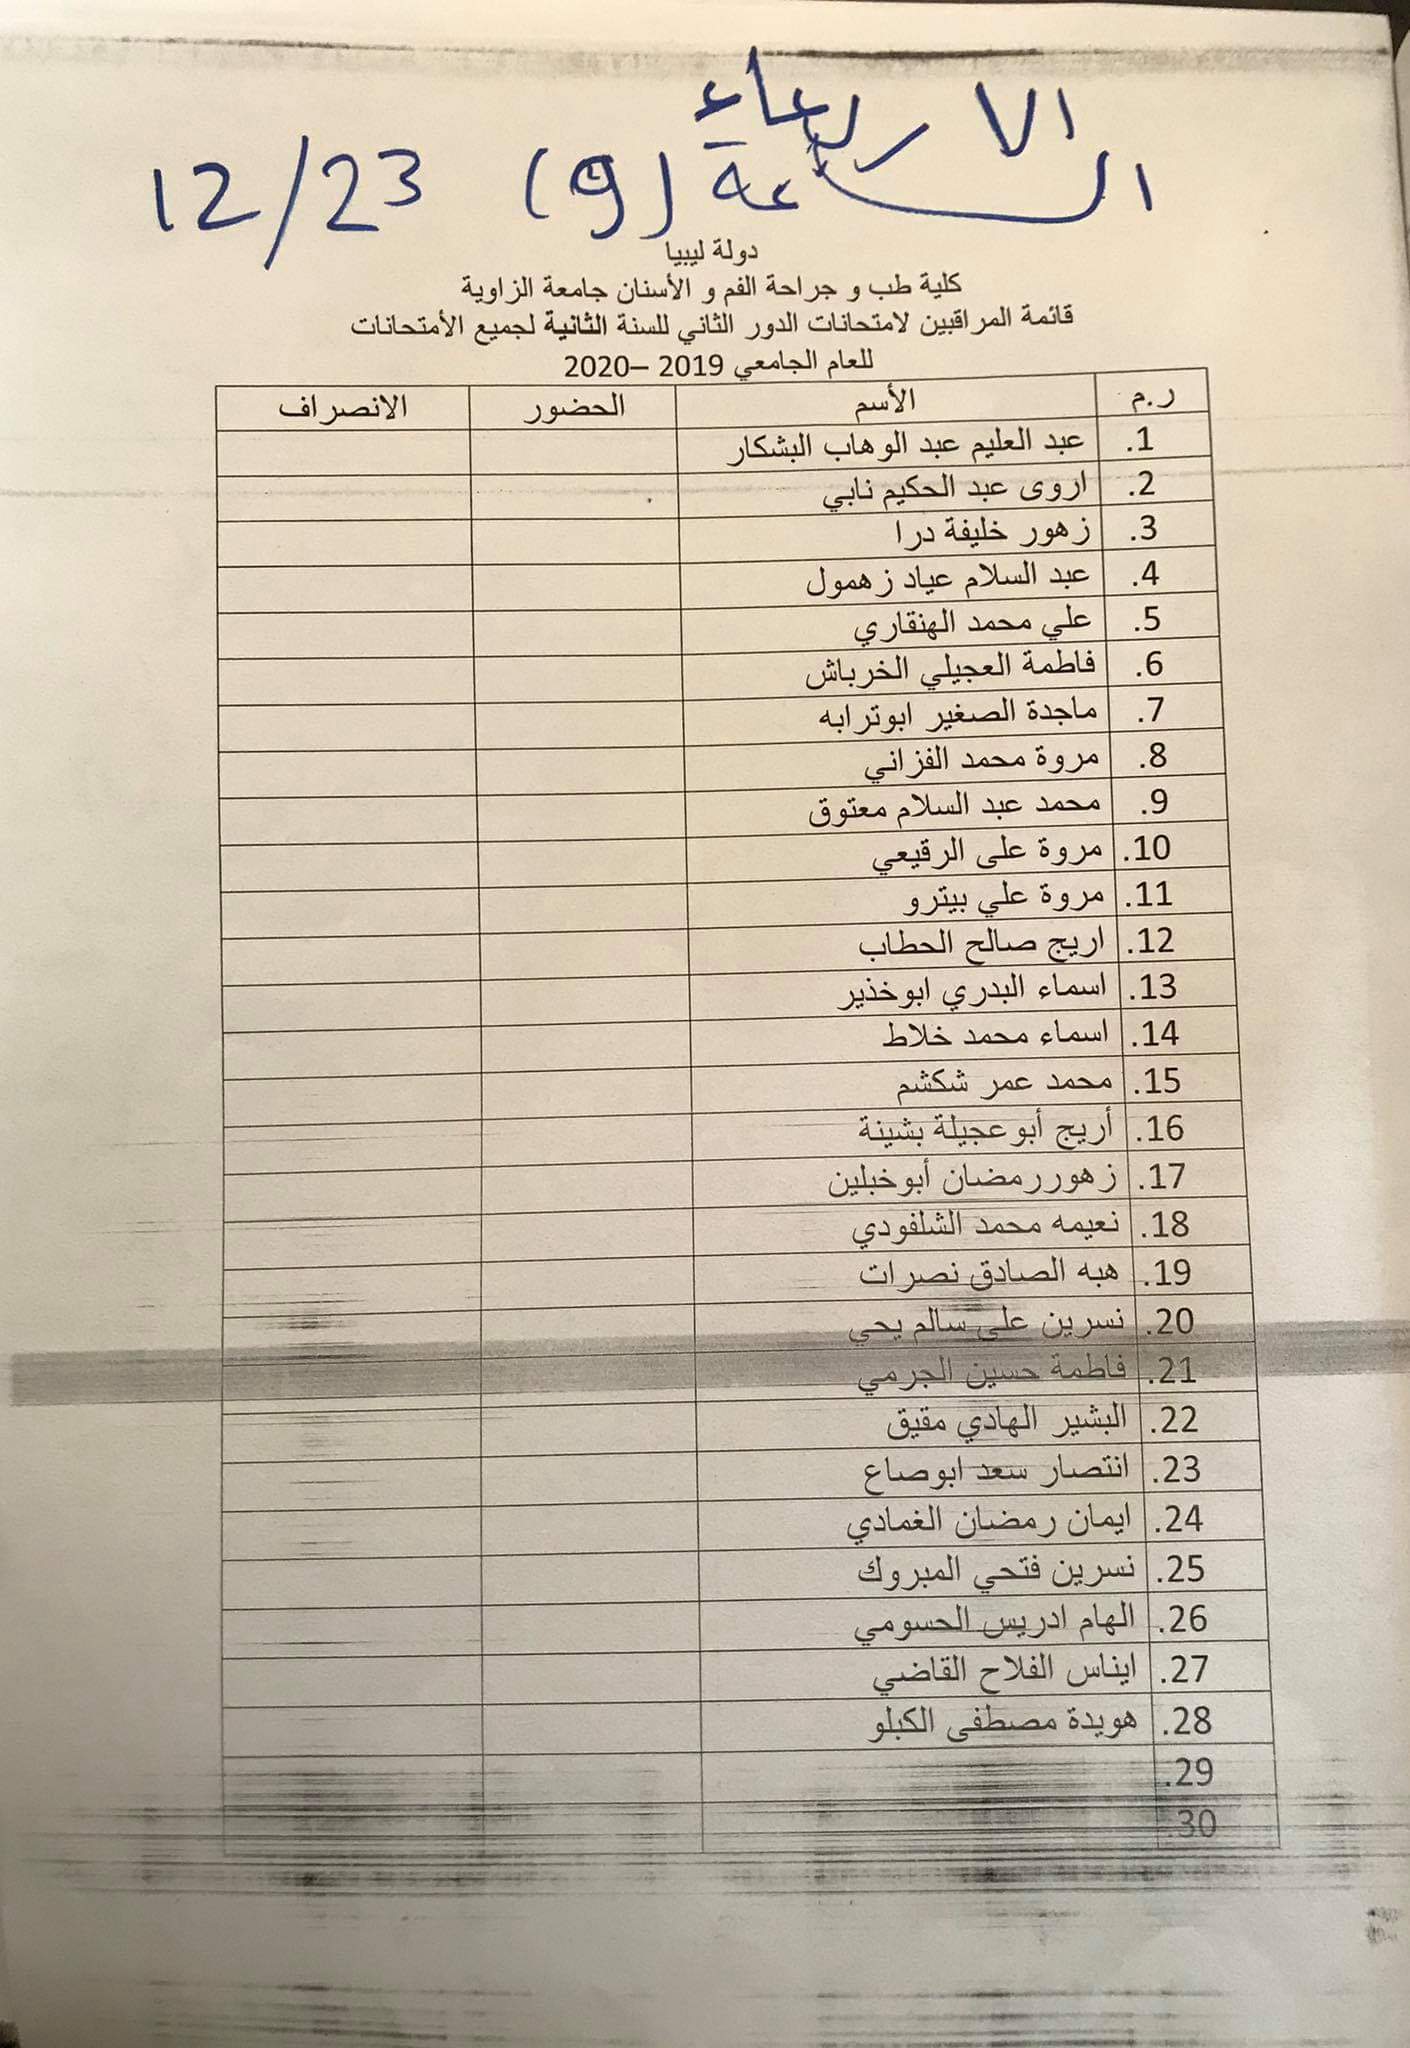 الاربعاء
الساعة (9) 12/23
دولة ليبيا
كلية طب و جراحة الفم و الأسنان جامعة الزاوية
قائمة المراقبين لامتحانات الدور الثاني للسنة الثانية لجميع الأمتحانات
للعام الجامعي 2019 –2020
ر.م الأسم الحضور الانصراف
1. عبد العليم عبد الوهاب البشكار
2. اروى عبد الحكيم نابي
3. زهور خليفة درا
4. عبد السلام عياد زهمول
5. علي محمد الهنقاري
6. فاطمة العجيلي الخرباش
7. ماجدة الصغير ابوترابه
8. مروة محمد الفزاني
9. محمد عبد السلام معتوق
10. مروة على الرقيعي
11. مروة علي بيترو
12. اريج صالح الحطاب
13. اسماء البدري ابوخذير
14. اسماء محمد خلاط
15. محمد عمر شكشم
16. أريج أبوعجيلة بشينة
17. زهوررمضان أبوخبلين
18. نعيمه محمد الشلفودي
19. هبه الصادق نصرات
20. نسرين على سالم يحي
21. فاطمة حسين الجرمي
22. البشير الهادي مقيق
23. انتصار سعد ابوصاع
24. ايمان رمضان الغمادي
25. نسرين فتحي المبروك
26. الهام ادريس الحسومي
27. ايناس الفلاح القاضي
28. هويدة مصطفى الكبلو
29.
30.